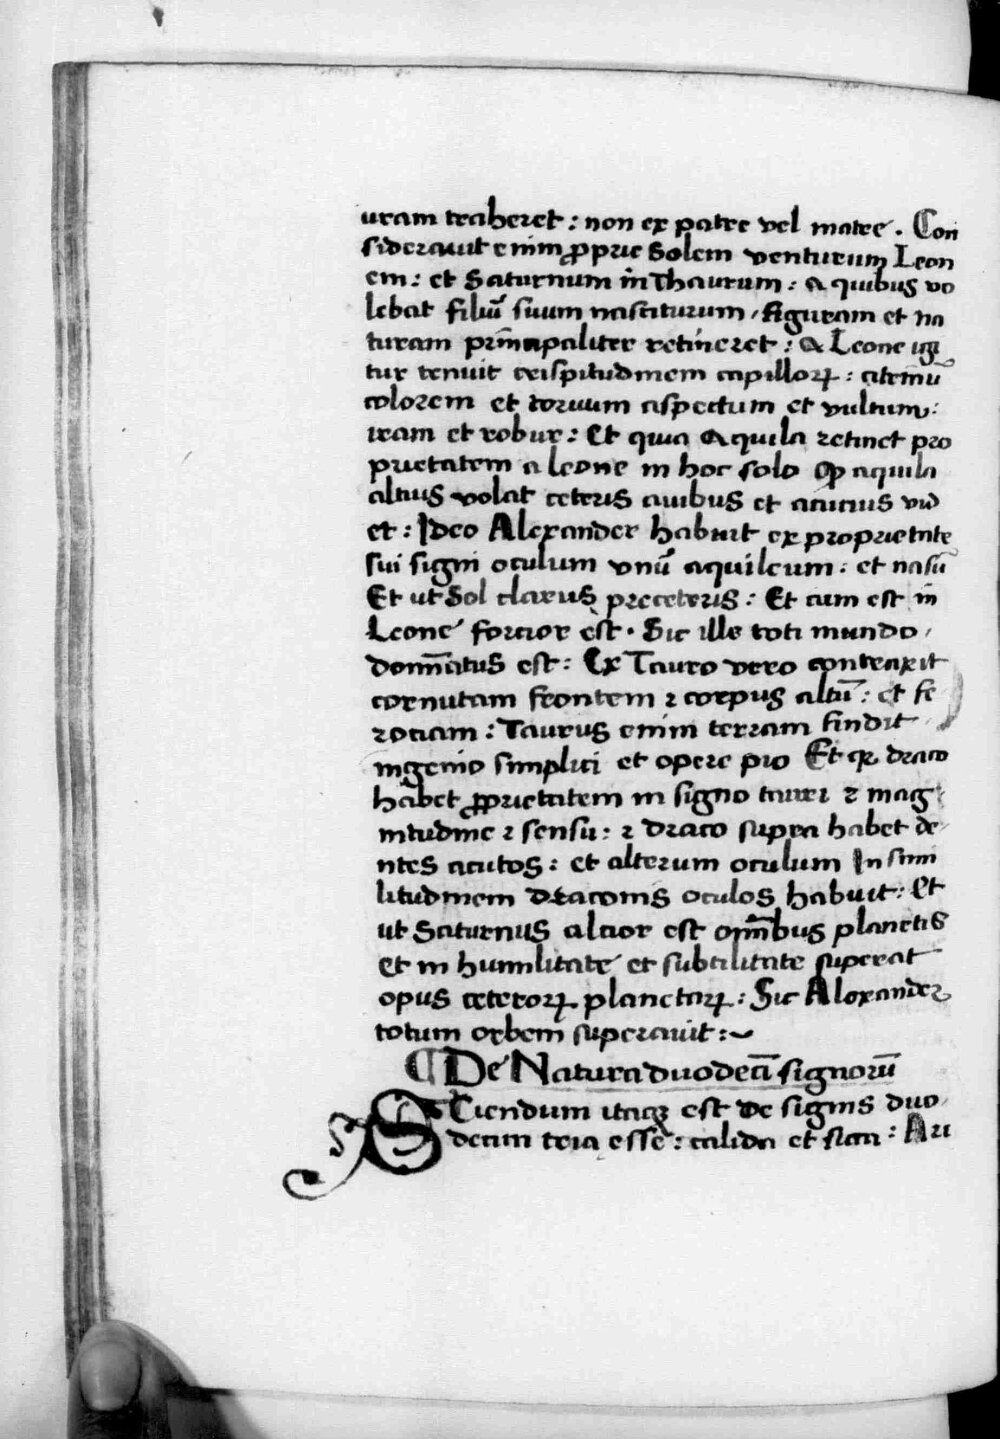 uram traheret : non ex patre vel matre . Con
siderauit enim ꝓprie Solem venturum Leon
em : et Saturnum in Thaurum : a quibus vo
lebat filiū suum nasciturum / figuram et na
turam prīncipaliter retineret : A Leone igi
tur tenuit crispitudinem capilloꝝ : citrinū
colorem et toruum aspectum et vultum :
iram et robur : Et quia aquila retinet pro
prietatem a leone in hoc solo ꝙ aquila
altius volat ceteris auibus et acutius vid
et : Ideo Alexander habuit ex proprietate
sui signi oculum vnū aquileum : et nasū
Et ut Sol clarus pre ceteris : Et cum est in
Leone forcior est . Sic ille toti mundo /
domīatus est : Ex Tauro vero contraxit
cornutam frontem ⁊ corpus altū : et fe
rociam : Taurus enim terram findit
ingenio simplici et opere pio Et qꝛ draco
habet ꝓprietatem in signo tauri ⁊ mag
nitudine ⁊ sensu : ⁊ draco supra habet de
ntes acutos : et alterum oculum In simi
litudinem draconis oculos habuit : Et
ut Saturnus alcior est omībus planetis
et in humilitate et subtilitate superat
opus ceteroꝝ planetaꝝ : Sic Alexander
totum orbem superauit :~
¶ De Natura duodecī signorū
Sciendum itaqꝫ est de signis duo
decim tria esse : calida et sicca : Ari